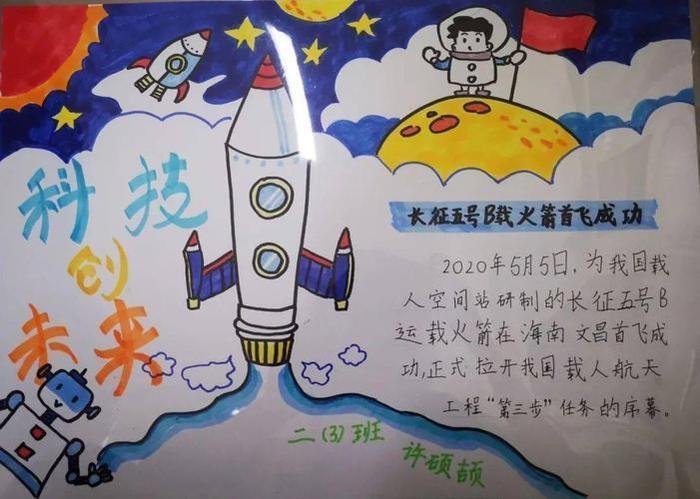 科技
创
未来
长征五号B载火箭首飞成功
2020年5月5日,为我国载
人空间站研制的长征五号B
运载火箭在海南文昌首飞成
功,正式拉开我国载人航天
工程“第三步”任务的序幕。
二(3)班
许硕颉